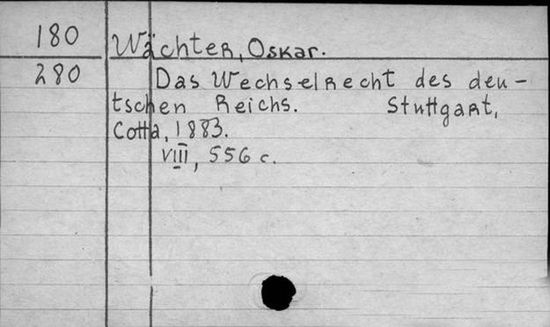 180 Wächter, Oskar.
280 Das Wechselrecht des deu-
tschen Reichs. Stuttgart,
Cotta, 1883.
VIII, 556 c.